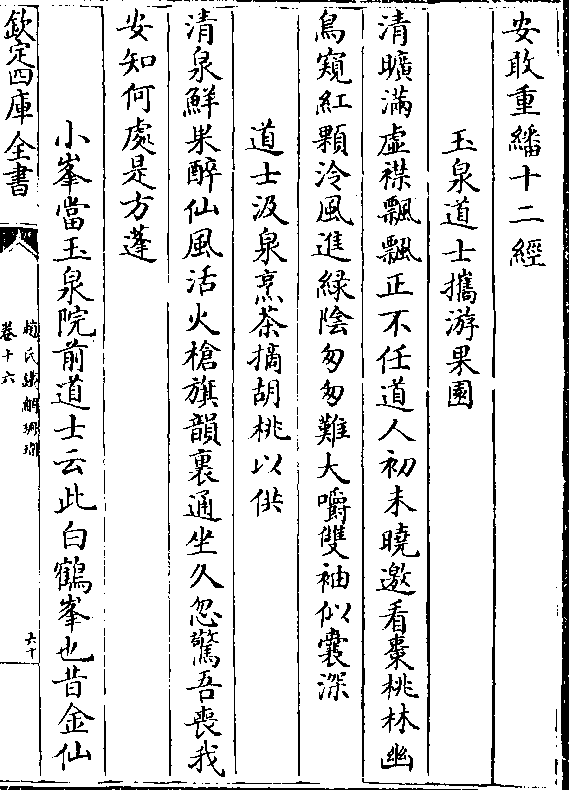 安敢重繙十二經
玉泉道士攜游果園
清曠滿虛襟飄飄正不任道人初未曉邀看棗桃林幽
鳥窺紅顆泠風進緑陰匆匆難大嚼雙袖似囊深
道士汲泉烹茶摘胡桃以供
清泉鮮果醉仙風活火槍旗韻裏通坐久忽驚吾喪我
安知何處是方蓬
小峯當玉泉院前道士云此白鶴峯也昔金仙
欽定四庫全書
趙氏鐵網珊瑚
卷十六
六十